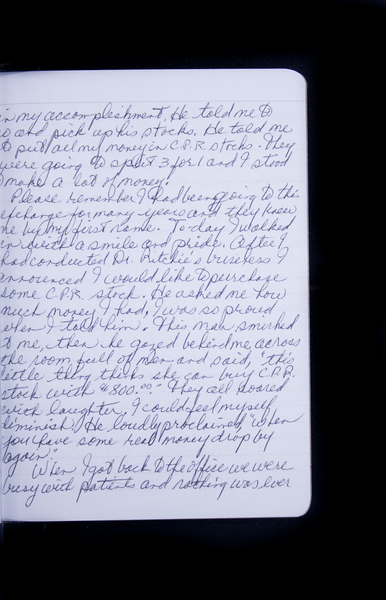 in my accomplishment. He told me to
go and pick up his stocks. He told me
to put all my money in C.P.R. stocks. They
were going to split 3 for 1 and I stood
to make a lot of money.
Please remember I had been going to this
exchange for many years and they knew
me by my first name. Today I walked
in with a smile and pride. After I
had conducted Dr. Ritchie's business I
announced I would like to purchase
some C.P.R. stock. He asked me how
much money I had, I was so proud
when I told him. This man smirked
to me, then he gazed behind me across
the room full of men and said, "this
little thing thinks she can buy C.P.R.
stock with $800.00." They all roared
with laughter, I could feel myself
diminish. He loudly proclaimed, "when
you have some real money drop by
again."
When I got back to the office we were
busy with patients and nothing was ever